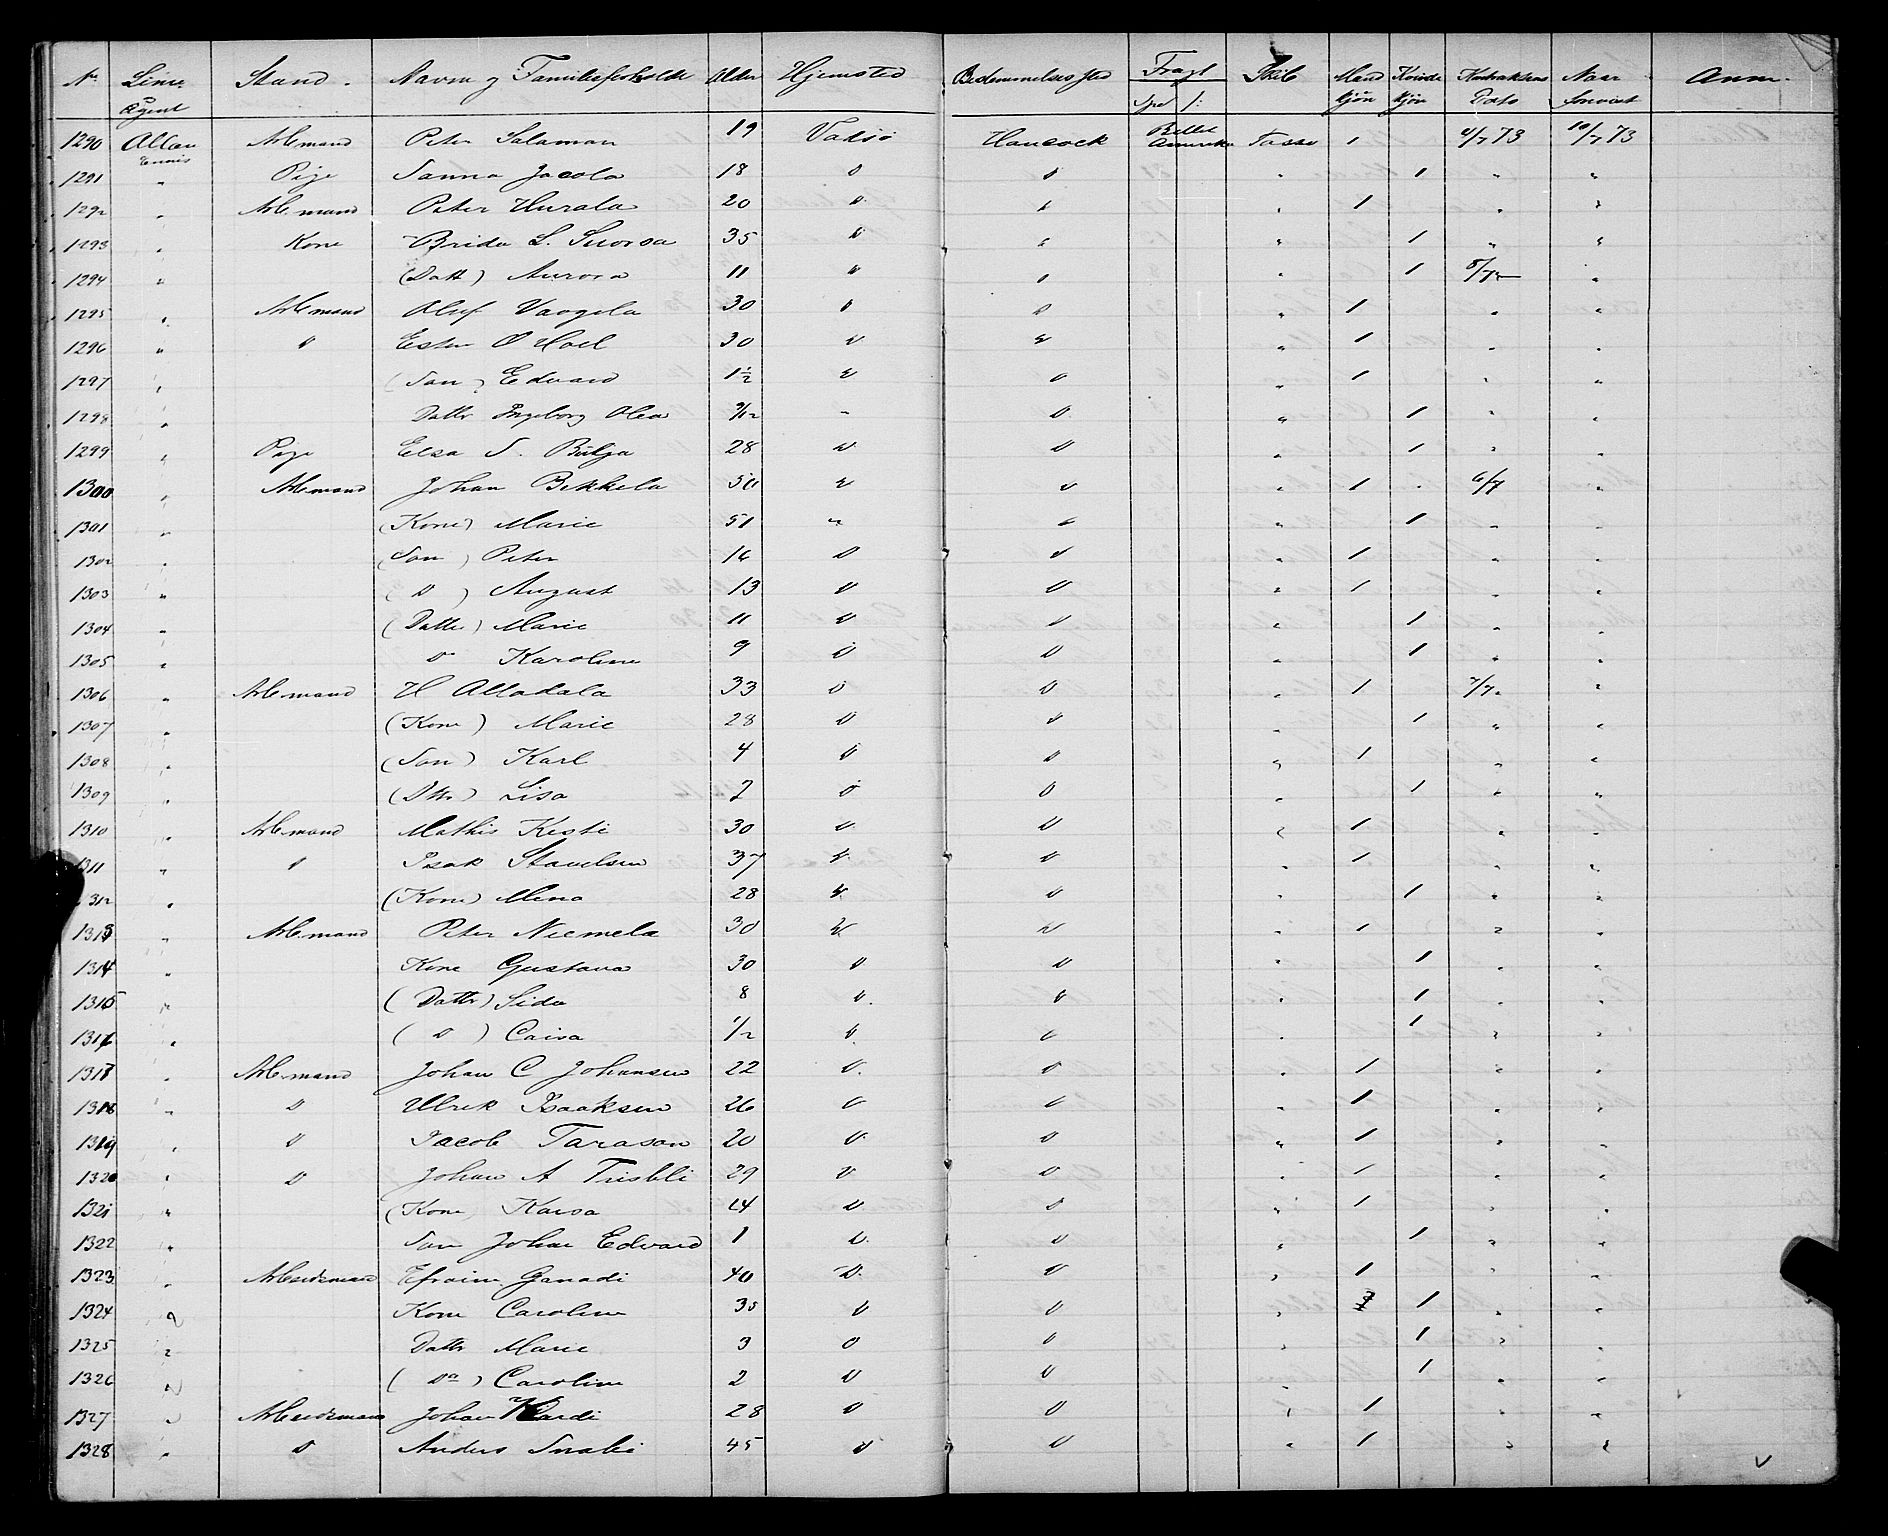 No. Linie Agent Stand. Navn og Familieforhold Alder Hjemsted Bestemmelsessted Fragt Spd ß: Skib Mand kjøn Kvinde kjøn Kontraktens Dato Naar Anm.
1290 Allan Ennis Arb.mand Peter Salaman 19 Vadsø Hancock Billet Amerika Tasso 1 4/7 73 10/7 73
1291 " Pige Sanna Jacola 18 D D " 1 " "
1292 " Arb.mand Peter Hurala 20 D " 1 " "
1293 " Kone Brida L. Suorsa 35 D " 1 " "
1294 " (Datt) Aurora 11 " " 1 5/7 "
1295 " Arb.mand Oluf Vaogela 30 D D " 1 " "
1296 " D 30 D D " 1 " "
1297 " (Søn) Edvard 1½ D D " 1 " "
1298 " Dattr Ingeborg Olea 9/12 " D " 1 " "
1299 " Pige Elsa S. 28 D D " 1 " "
1300 " Arb.mand Johan Bekkela 50 D D " 1 6/7 "
1301 " (Kone) Marie 51 " D " 1 " "
1302 " (Søn) Peter 16 D D " 1 " "
1303 " ( D ) August 13 D D " 1 " "
1304 " (Datter) Marie 11 D D " 1 " "
1305 " D Karoline 9 D D " 1 " "
1306 " Arb.mand H Alladala 33 D D " 1 7/7 "
1307 " (Kone) Marie 28 D D " 1 " "
1308 " (Søn) Karl 4 D D " 1 " "
1309 " (Dttr) Lisa 2 D D " 1 " "
1310 " Arb.mand Mathis Kesti 30 D D " 1 " "
1311 " D Isak 37 D D " 1 " "
1312 " (Kone) Mina 28 D D " 1 " "
1313 " Arb.mand Peter Niemela 30 D D " 1 " "
1314 " Kone Gustava 30 D D " 1 " "
1315 " (Dattr) Sida 8 D D " 1 " "
1316 " ( D ) Caisa 1/2 D D " 1 " "
1317 " Arb.mand Johan C Johansen 22 D D " 1 " "
1318 " D Ulrik Isaaksen 26 D D " 1 " "
1319 " D Jacob Tarason 20 D D " 1 " "
1320 " D Johan A 29 D D " 1 " "
1321 " (Kone) Kaisa 24 D D " 1 " "
1322 " Søn Johan Edvard 1 D D " 1 " "
1323 " Arbeidsmand Efraim Ganadi 40 D D " 1 " "
1324 " Kone Caroline 35 D D " 1 " "
1325 " Dattr Marie 3 D D " 1 " "
1326 " ( Do ) Caroline 2 D D " 1 " "
1327 " Arbeidsmand Johan 28 D D " 1 " "
1328 " D Anders 45 D D " 1 " "